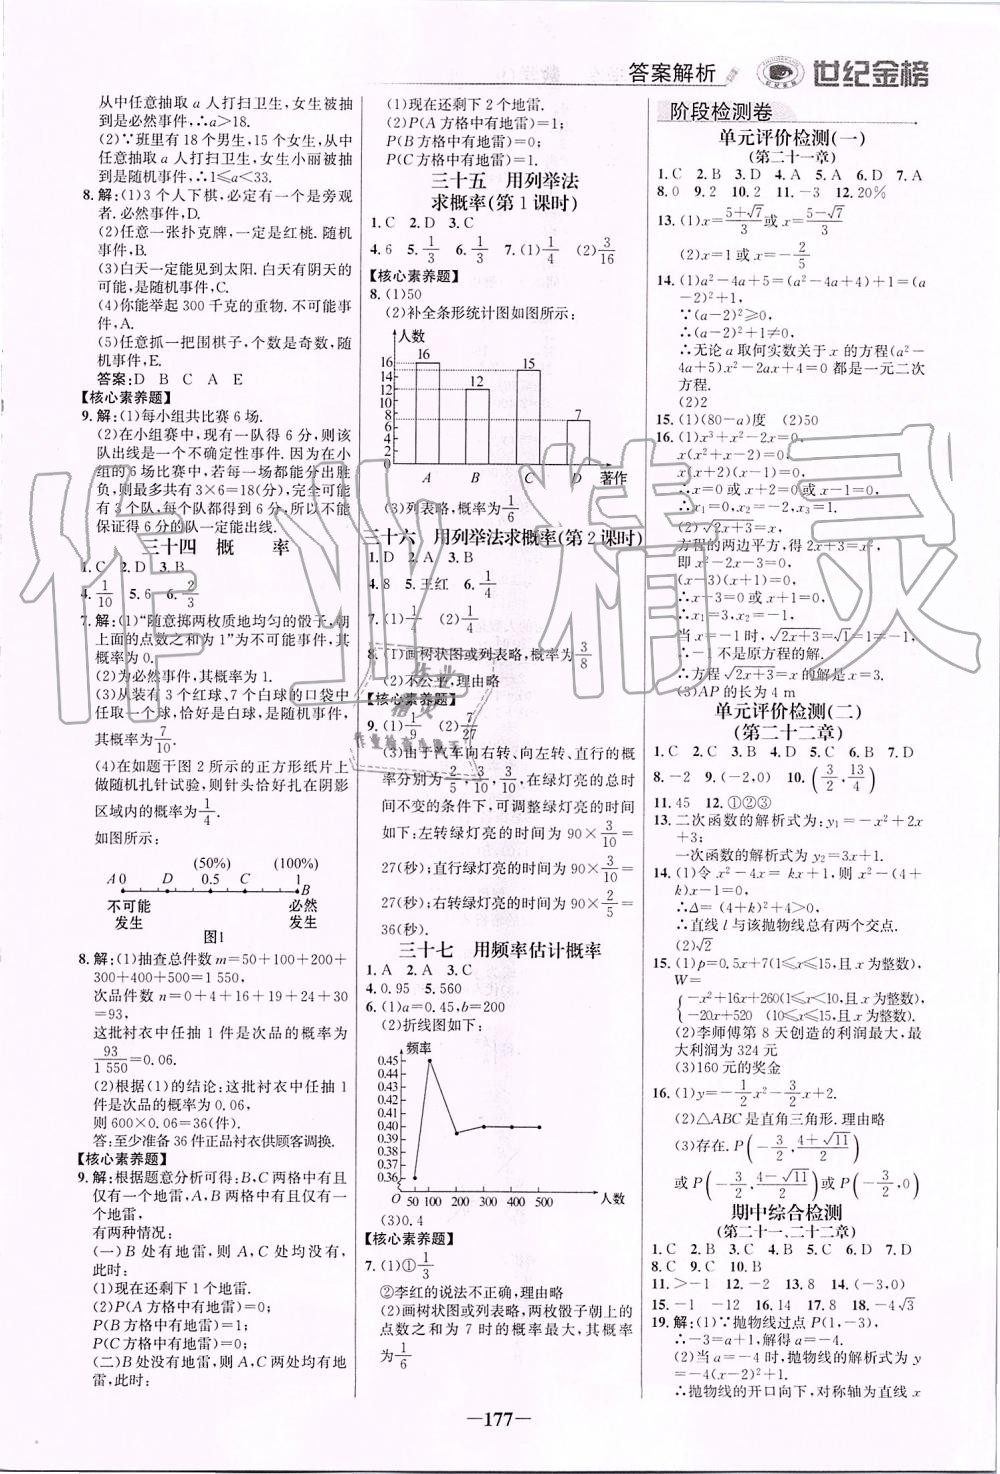 答案解析
世纪金榜
从中任意抽取 a 人打扫卫生,女生被抽
到是必然事件,∴a>18.
(2)∵班里有 18 个男生,15 个女生,从
中任意抽取 a 人打扫卫生,女生小丽被抽
到是随机事件,∴1≤a<33.
8. 解:(1)3 个人下棋,必定有一个是旁观
者.必然事件,D.
(2)任意一张扑克牌,一定是红桃.随机
事件,B.
(3)白天一定能见到太阳.白天有阴天的
可能,是随机事件,C.
(4)你能举起 300 千克的重物.不可能事
件,A.
(5)任意抓一把围棋子,个数是奇数,随机
事件,E.
答案:D B C A E
【核心素养题】
9. 解:(1)每小组共比赛 6 场.
(2)在小组赛中,现有一队得 6 分,则该
队出线是一个不确定性事件.因为在小
组的 6 场比赛中,若每一场都能分出胜
负,则最多共有 3×6=18(分),完全可能
有 3 个队,每个队都得到 6 分,所以不能
保证得 6 分的队一定能出线.
三十四 概 率
1. C 2. D 3. B
4. 1/10 5. 6 6. 2/3
7. 解:(1)“随意掷两枚质地均匀的骰子,朝
上面的点数之和为 1”为不可能事件,其
概率为 0.
(2)为必然事件,其概率为 1.
(3)从装有 3 个红球、7 个白球的口袋中
任取一个球,恰好是白球,是随机事件,
其概率为 7/10.
(4)在如题干图 2 所示的正方形纸片上
做随机扎针试验,则针头恰好扎在阴影
区域内的概率为 1/4.
如图所示:
(50%) (100%)
A 0 D 0.5 C 1 B
不可能 必然
发生 发生
图1
8. 解:(1)抽查总件数 m=50+100+200+
300+400+500=1 550,
次品件数 n=0+4+16+19+24+30
=93,
这批衬衣中任抽 1 件是次品的概率为
93/1 550=0.06.
(2)根据(1)的结论:这批衬衣中任抽 1
件是次品的概率为 0.06,
则 600×0.06=36(件).
答:至少准备 36 件正品衬衣供顾客调换.
【核心素养题】
9. 解:根据题意分析可得:B,C 两格中有且
仅有一个地雷,A,B 两格中有且仅有一
个地雷,
有两种情况:
(一)B 处有地雷,则 A,C 处均没有,
此时:
(1)现在还剩下 1 个地雷.
(2)P(A 方格中有地雷)=0;
P(B 方格中有地雷)=1;
P(C 方格中有地雷)=0;
(二)B 处没有地雷,则 A,C 两处均有地
雷,此时:
(1)现在还剩下 2 个地雷.
(2)P(A 方格中有地雷)=1;
P(B 方格中有地雷)=0;
P(C 方格中有地雷)=1.
三十五 用列举法
求概率(第 1 课时)
1. C 2. D 3. C
4. 6 5. 1/3 6. 1/3 7. (1)1/4 (2)3/16
【核心素养题】
8. (1)50
(2)补全条形统计图如图所示:
人数
16
14
12
10
8
6
4
2
0
16 12 15 7
A B C D 著作
(3)列表略,概率为 1/6
三十六 用列举法求概率(第 2 课时)
1. D 2. A 3. B
4. 8 5. 王红 6. 1/4
8. (1)画树状图或列表略,概率为 3/8
(2)不公平,理由略
【核心素养题】
9. (1)1/9 (2)7/27
(3)由于汽车向右转、向左转、直行的概
率分别为 2/5,3/10,3/10,在绿灯亮的总时
间不变的条件下,可调整绿灯亮的时间
如下:左转绿灯亮的时间为 90×3/10=
27(秒);直行绿灯亮的时间为 90×3/10=
27(秒);右转绿灯亮的时间为 90×2/5=
36(秒).
三十七 用频率估计概率
1. A 2. A 3. C
4. 0.95 5. 560
6. (1)a=0.45,b=200
(2)折线图如下:
频率
0.45
0.44
0.43
0.42
0.41
0.40
0.39
0.38
0.37
0.36
O 50 100 200 300 400 500 人数
(3)0.4
【核心素养题】
7. (1)①1/3
②李红的说法不正确,理由略
(2)画树状图或列表略,两枚骰子朝上的
点数之和为 7 时的概率最大,其概率
为 1/6
阶段检测卷
单元评价检测(一)
(第二十一章)
1. C 2. B 3. D 4. A 5. A 6. D 7. A
8. 0 9. 2 10. 2 11. −3 12. 20%
13. (1)x=(5+√7)/3 或 x=(5−√7)/3
(2)x=1 或 x=−2/5
14. (1)a²−4a+5=(a²−4a+4)+1=(a
−2)²+1,
∵(a−2)²≥0,
∴(a−2)²+1≠0.
∴无论 a 取何实数关于 x 的方程(a²−
4a+5)x²+2ax+4=0 都是一元二次
方程.
(2)2
15. (1)(80−a)度 (2)50
16. (1)x³+x²−2x=0,
x(x²+x−2)=0,
x(x+2)(x−1)=0,
∴x=0 或 x+2=0 或 x−1=0,
∴x₁=0,x₂=−2,x₃=1.
(2)√2x+3=x,
方程的两边平方,得 2x+3=x²,
即 x²−2x−3=0,
(x−3)(x+1)=0,
∴x−3=0 或 x+1=0,
∴x₁=3,x₂=−1,
当 x=−1 时,√2x+3=√1=1≠−1,
∴−1 不是原方程的解.
∴方程 √2x+3=x 的解为 x=3.
(3)AP 的长为 4 m
单元评价检测(二)
(第二十二章)
1. C 2. C 3. B 4. D 5. C 6. B 7. D
8. −2 9. (−2,0) 10. (3/2,13/4)
11. 45 12. ①②③
13. 二次函数的解析式为:y₁=−x²+2x
+3;
一次函数的解析式为 y₂=3x+1.
14. (1)令 x²−4x=kx+1,则 x²−(4+
k)x−1=0,
∴Δ=(4+k)²+4>0,
∴直线 l 与该抛物线总有两个交点.
(2)√2
15. (1)p=0.5x+7(1≤x≤15,且 x 为整数),
W=
{−x²+16x+260(1≤x<10,且 x 为整数)
−20x+520 (10≤x≤15,且 x 为整数)
(2)李师傅第 8 天创造的利润最大,最
大利润为 324 元
(3)160 元的奖金
16. (1)y=−1/2x²−3/2x+2.
(2)△ABC 是直角三角形.理由略
(3)存在.P(−3/2,(4+√11)/2)
或 P(−3/2,(4−√11)/2)或 P(−3/2,0)
期中综合检测
(第二十一、二十二章)
1. C 2. B 3. B 4. C 5. C 6. D 7. D
8. C 9. C 10. B
11. >−1 12. −2 13. 8 14. (−3,0)
15. −1 −12 16. 14 17. 8 18. −4√3
19. 解:(1)∵抛物线过点 P(1,−3),
∴−3=a+1,解得 a=−4.
(2)当 a=−4 时,抛物线的解析式为
y=−4(x−2)²+1.
∴抛物线的开口向下,对称轴为直线 x
—177—
作业精灵